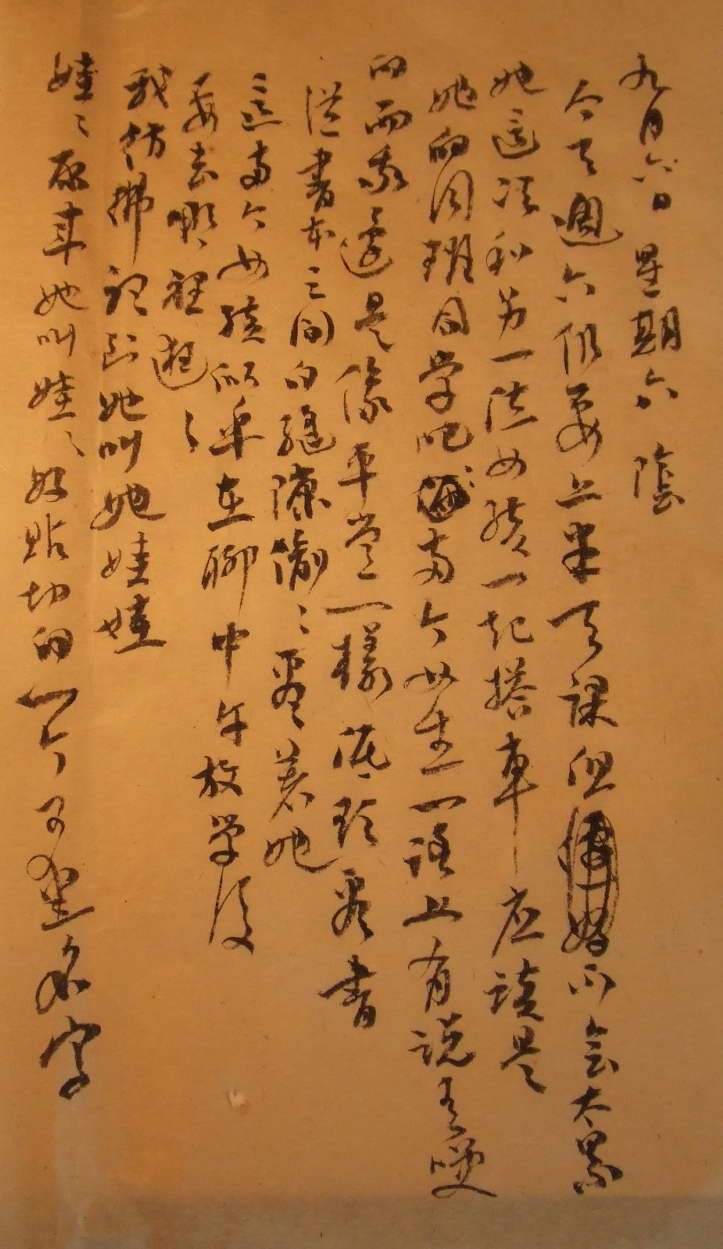 九月六日 星期六 陰
今天週六仍要上半天課但好不会太累
她這次和另一位女孩一起搭車应該是
她的同班同学吧両个女生一路上有説有哽
的而我還是像平常一樣低頭看書
從書本之间的縫隙偷〻看著她
這両个女孩似乎在聊中午放学後
要去哪裡逛〻
我彷彿記到她叫她娃娃
娃〻原来她叫娃〻好貼切的一个可爱名字